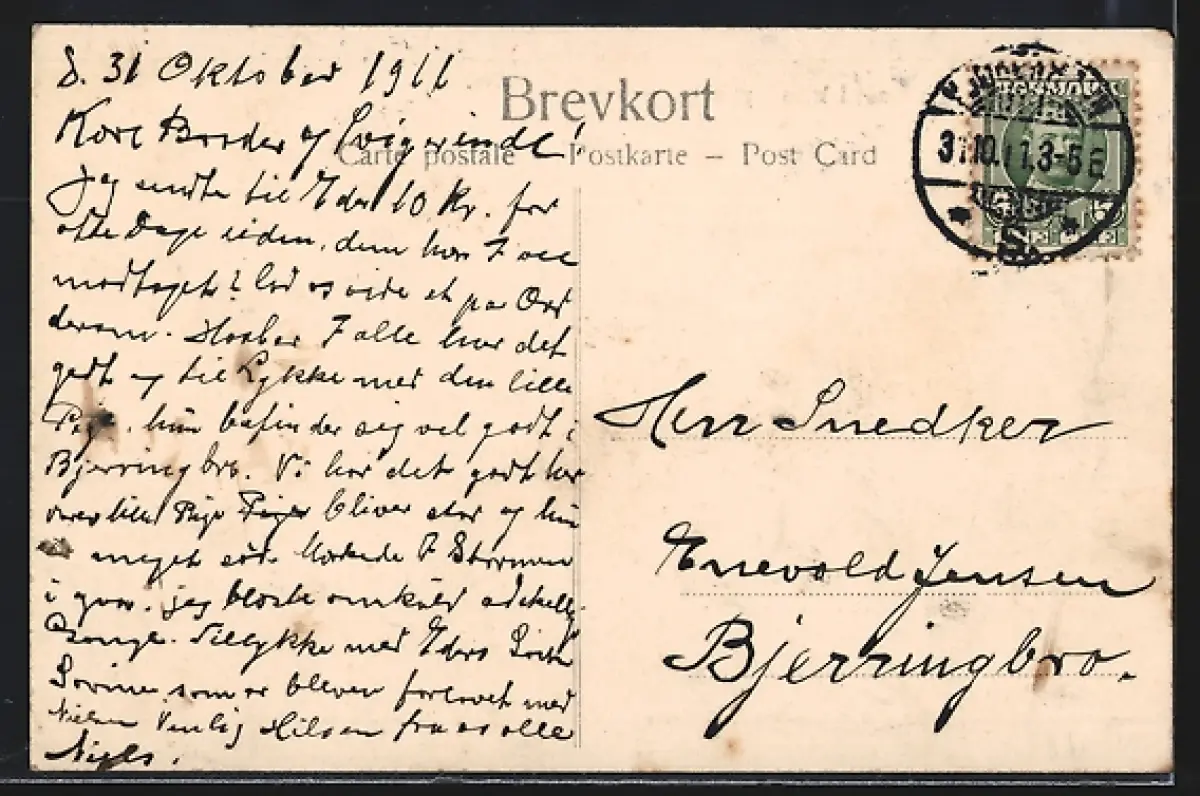 d. 31 Oktober 1911
Brevkort
Carte postale – Postkarte – Post Card
Kære Broder og Svigerinde!
Jeg sendte til Eder 10 Kr. for
otte Dage siden, dem har I vel
modtaget? lad os vide et par Ord
derom. Haaber I alle har det
godt og til Lykke med den lille
Pige, hun befinder sig vel godt i
Bjerringbro. Vi har det godt her
vores lille Pige bliver stor og hun
meget sød. Mærkede I Stormen
i gaar, jeg blæste omkuld adskellige
Gange. Tillykke med Eders
som er bleven forlovet med
Nielsen Venlig Hilsen fra os alle
Niels.
DANMARK
31.10.11.3-5E
S.
Herr Snedker
Enevold Jensen
Bjerringbro.